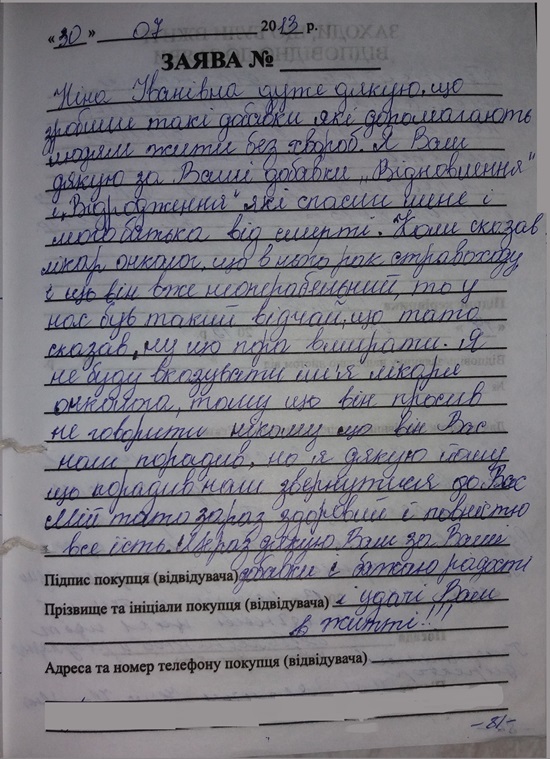 «30» 07 2013 р.
ЗАЯВА №
Ніна Іванівна дуже дякую, що
зробили такі добавки які допомагають
людям жити без хвороб. Я Вам
дякую за Ваші добавки „Відновлення"
і „Відродження" які спасли мене і
мого батька від смерті. Коли сказав
лікар онколог, що в нього рак стравоходу
і що він вже неоперабельний, то у
нас був такий відчай, що тато
сказав, ну що пора вмирати. Я
не буду вказувати ім'я лікаря
онколога, тому що він просив
не говорити нікому що він Вас
нам порадив, но я дякую йому
що порадив нам звернутися до Вас
Мій тато зараз здоровий і повністю
все їсть. Ще раз дякую Вам за Ваші
Підпис покупця (відвідувача) добавки і бажаю радості
Прізвище та ініціали покупця (відвідувача) і удачі Вам
в житті!!!
Адреса та номер телефону покупця (відвідувача)
-81-